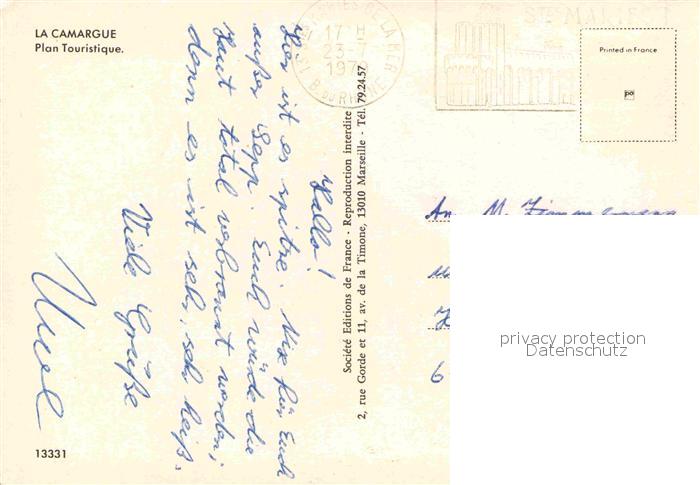 LA CAMARGUE
Plan Touristique.
Hallo!
Hier ist es spitze. Nix für Euch
außer Sepp. Euch würde die
Haut total verbrannt werden,
denn es ist sehr, sehr heiß.
Viele Grüße
13331
Société Editions de France - Reproduction interdite
2, rue Gorde et 11, av. de la Timone, 13010 Marseille - Tél. 79.24.57
17 H
23-7
B. DU RHONE
STES MARIES
Printed in France
An M. Zimmermann
6
privacy protection
Datenschutz